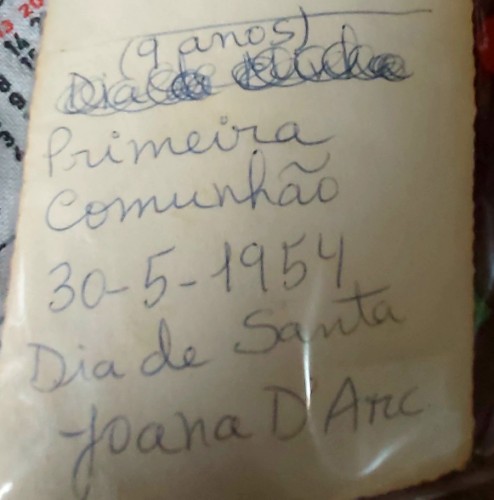 (9 anos)
Dia da
Primeira
Comunhão
30-5-1954
Dia de Santa
Joana D'Arc